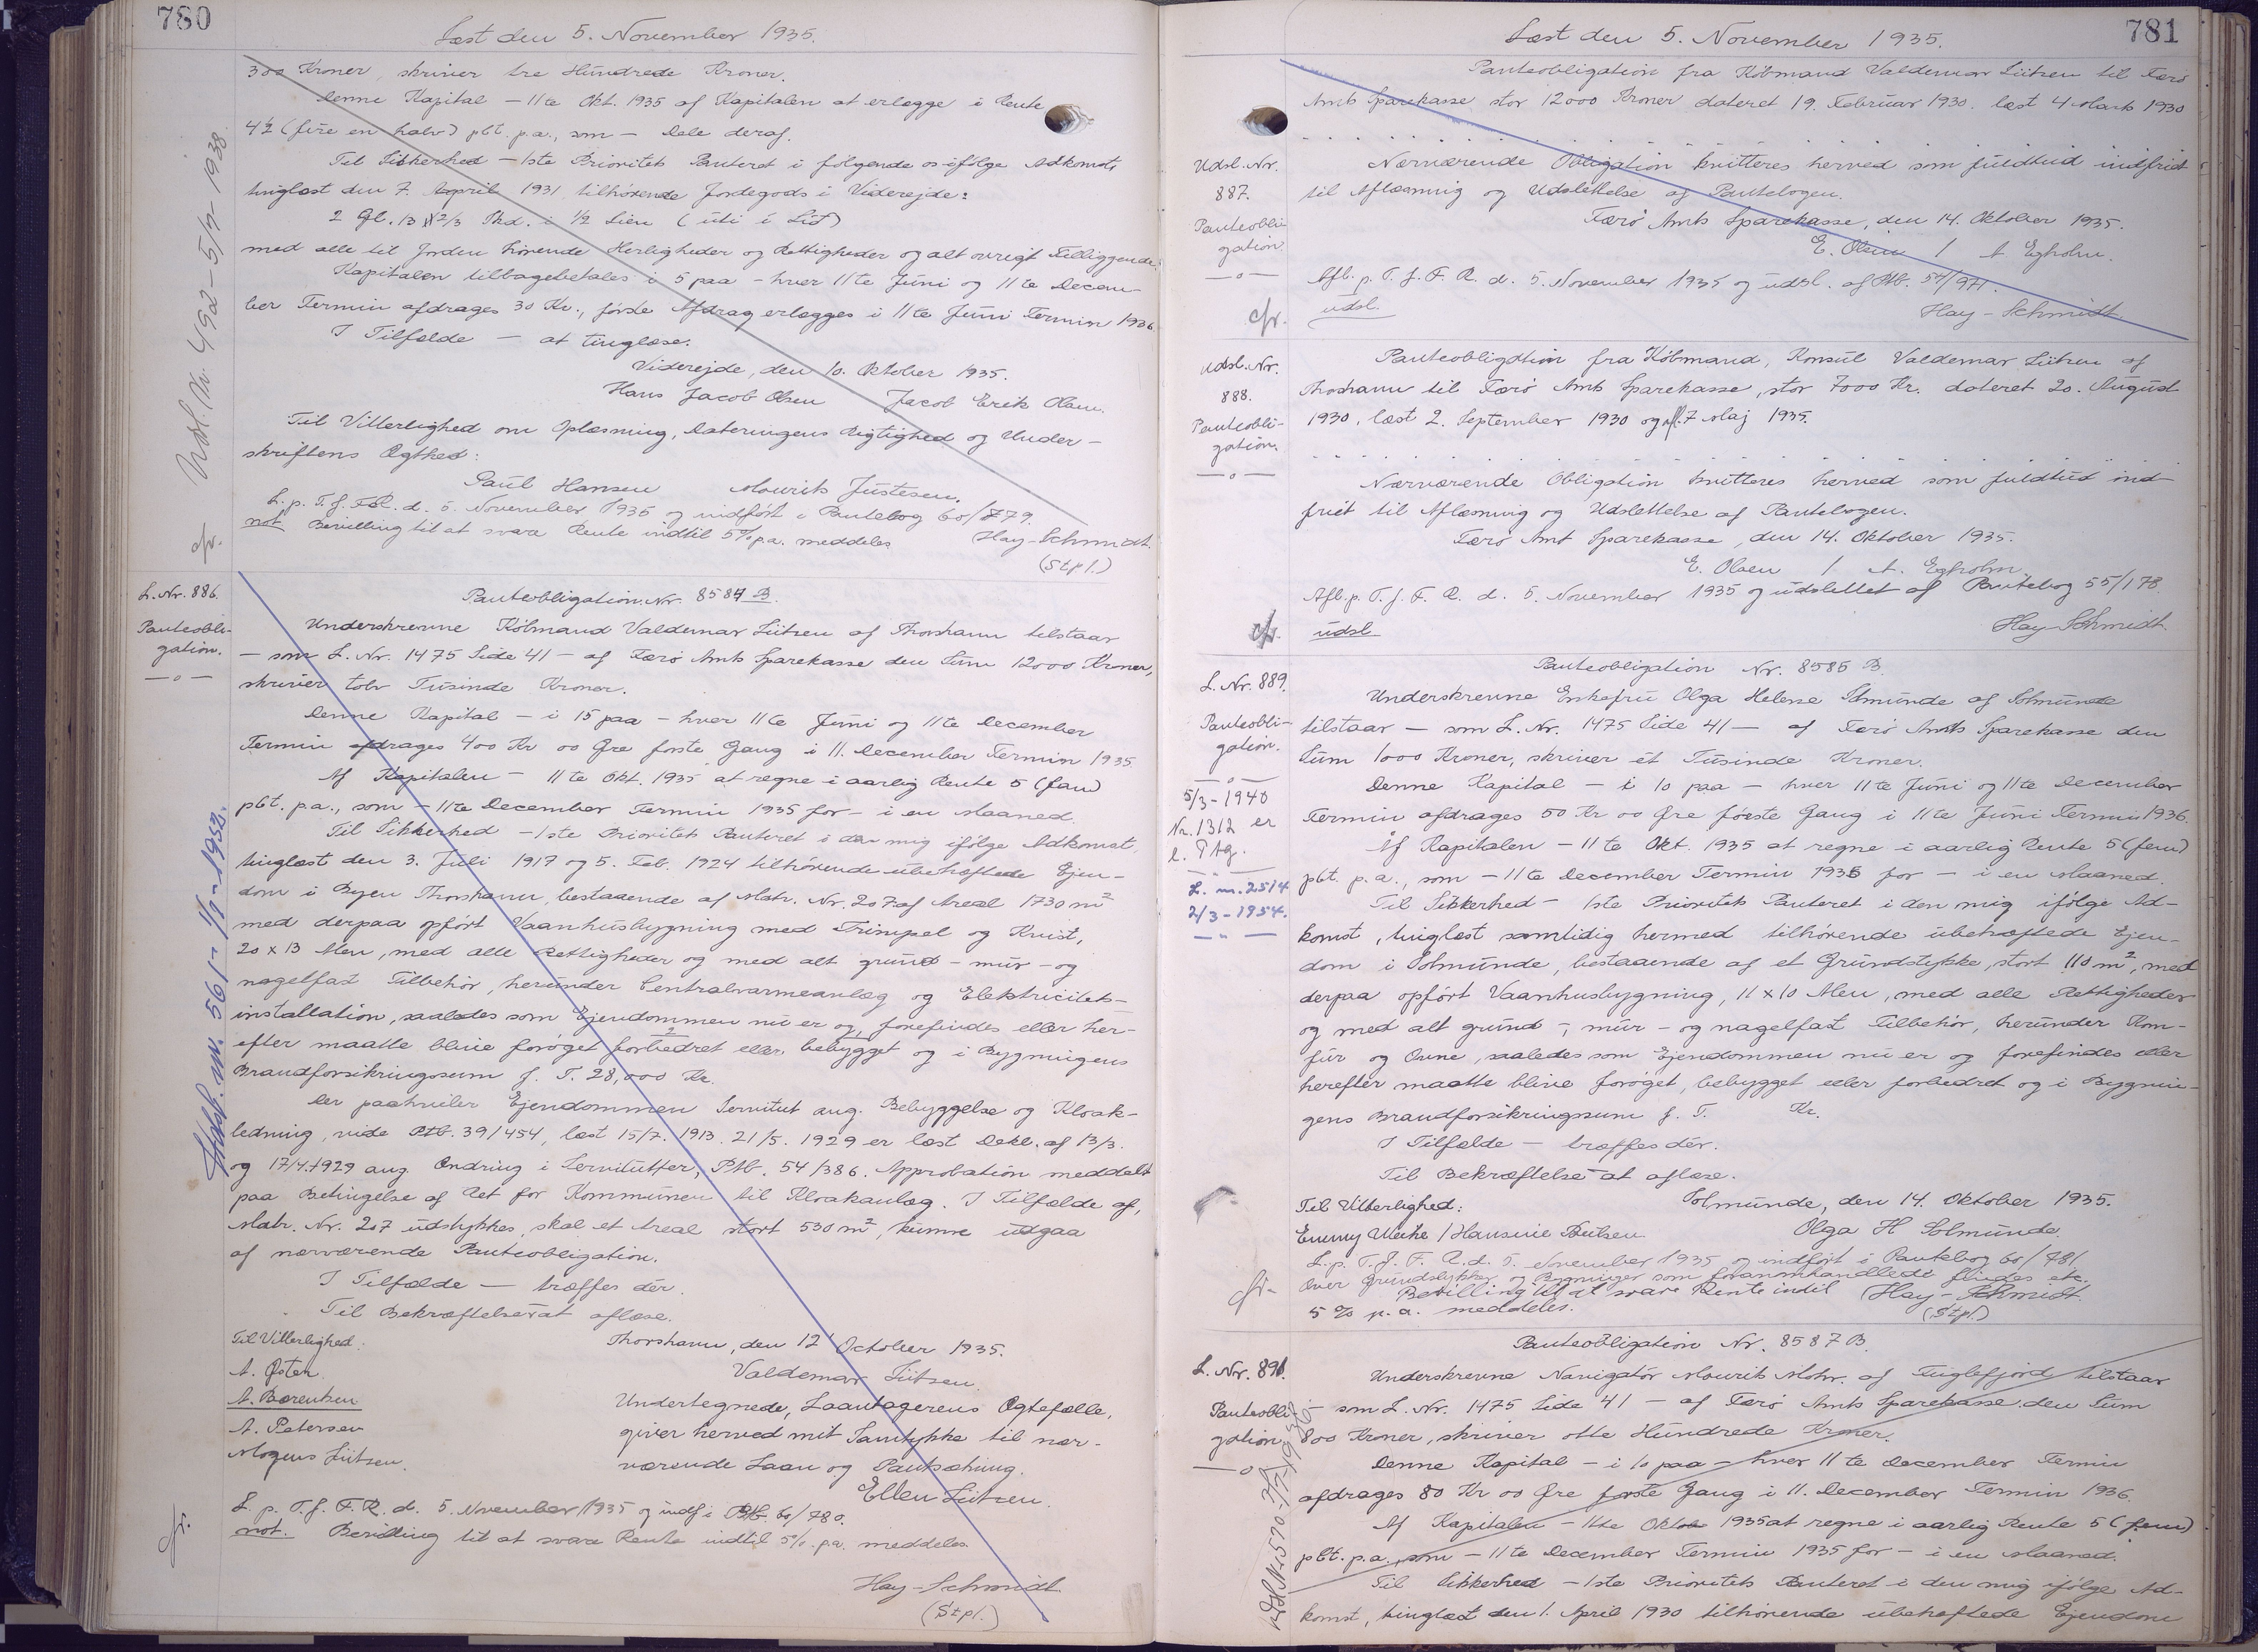 780
Læst den 5. November 1935.
300 Kroner, skriver tre Hundrede Kroner.
Denne Kapital — 11te Okt. 1935 af Kapitalen at erlægge i Rente
4½ (fire en halv) pCt. p.a., som — Dele deraf.
Til Sikkerhed — 1ste Prioritets Panteret i følgende os ifølge Adkomst,
tinglæst den 7. April 1931 tilhørende Jordegods i Viderejde:
2 Gl. 13 1/2/3 Skd. i ½ Lien (uti í Lið)
med alle til Jorden hørende Herligheder og Rettigheder og alt øvrigt Tilliggende.
Kapitalen tilbagebetales i 5 paa — hver 11te Juni og 11te Decem-
ber Termin afdrages 30 Kr., første Afdrag erlægges i 11te Juni Termin 1936
I Tilfælde — at tinglæse.
Viderejde, den 10. Oktober 1935.
Hans Jacob Olsen Jacob Erik Olsen.
Til Vitterlighed om Oplæsning, Dateringens Rigtighed og Under-
skriftens Ægthed:
Paul Hansen Mourits Justesen.
L. p. T. f. F. R. d. 5. November 1935 og indført i Pantebog 60/779.
not Bevilling til at svare Rente indtil 5% p.a. meddeles Hay-Schmidt.
(Stpl.)
Udsl. Nr. 492 - 5/7 - 1938.
cfr.
L. Nr. 886.
Panteobli-
gation.
—o—
Panteobligation Nr. 8584 B.
Underskrevne Købmand Valdemar Lützen af Thorshavn tilstaar
— som L. Nr. 1475 Side 41 — af Færø Amts Sparekasse den Sum 12000 Kroner,
skriver tolv Tusinde Kroner.
Denne Kapital — i 15 paa — hver 11te Juni og 11te December
Termin afdrages 400 Kr 00 Øre første Gang i 11. December Termin 1935.
Af Kapitalen — 11te Okt. 1935 at regne i aarlig Rente 5 (fem)
pCt. p.a., som — 11te December Termin 1935 for — i en Maaned.
Til Sikkerhed — 1ste Prioritets Panteret i den mig ifølge Adkomst,
tinglæst den 3. Juli 1917 og 5. Feb. 1924 tilhørende ubehæftede Ejen-
dom i Byen Thorshavn, bestaaende af Matr. Nr. 207 af Areal 1730 m²
med derpaa opført Vaanhusbygning med Trimpel og Kvist,
20 x 13 Alen, med alle Rettigheder og med alt grund- mur- og
nagelfast Tilbehør, herunder Centralvarmeanlæg og Elektricitets-
installation, saaledes som Ejendommen nu er og forefindes eller her-
efter maatte blive forøget forbedret eller bebygget og i Bygningens
Brandforsikringssum f. T. 28,000 Kr.
Der paahviler Ejendommen Servitut ang. Bebyggelse og Kloak-
ledning, vide Ptb. 39/454, læst 15/7. 1913. 21/5. 1929 er læst Dekl. af 13/3.
og 17/4. 1929 ang. Ændring i Servitutter, Ptb. 54/386. Approbation meddelt
paa Betingelse af Ret for Kommunen til Kloakanlæg. I Tilfælde af,
Matr. Nr. 207 udstykkes, skal et Areal stort 530 m², kunne udgaa
af nærværende Panteobligation.
I Tilfælde — træffes dér.
Til Bekræftelse — at aflæse.
Til Vitterlighed: Thorshavn, den 12 October 1935.
A. Østen. Valdemar Lützen.
A. Berentsen Undertegnede, Laantagerens Ægtefælle,
A. Petersen giver herved mit Samtykke til nær-
Mogens Lützen. værende Laan og Pantsætning.
Ellen Lützen.
L. p. T. f. F. R. d. 5. November 1935 og indf. i Ptb. 60/780.
not. Bevilling til at svare Rente indtil 5% p.a. meddeles.
Hay-Schmidt.
(Stpl.)
Udsl. nr. 561 - 1/7 - 1952.
cfr.
781
Læst den 5. November 1935.
Panteobligation fra Købmand Valdemar Lützen til Færø
Amts Sparekasse stor 12000 Kroner dateret 19. Februar 1930. læst 4 Marts 1930
Udsl. Nr.
887.
Panteobli-
gation
—o—
Nærværende Obligation kvitteres herved som fuldtud indfriet
til Aflæsning og Udslettelse af Pantebogen.
Færø Amts Sparekasse, den 14. Oktober 1935.
E. Olsen / A Egholm.
Afl. p. T. f. F. R. d. 5. November 1935 og udsl. af Ptb. 54/971.
cfr. udsl. Hay-Schmidt.
Udsl. Nr.
888.
Panteobli-
gation.
—o—
Panteobligation fra Købmand, Konsul Valdemar Lützen af
Thorshavn til Færø Amts Sparekasse, stor 7000 Kr. dateret 20. August
1930, læst 2. September 1930 og afl. 7 Maj 1935.
Nærværende Obligation kvitteres herved som fuldtud ind-
friet til Aflæsning og Udslettelse af Pantebogen.
Færø Amt Sparekasse, den 14. Oktober 1935.
E. Olsen / A. Egholm
Afl. p. T. f. F. R. d. 5. November 1935 og udslettet af Pantebog 55/178.
cfr. udsl Hay-Schmidt.
L. Nr. 889.
Panteobli-
gation.
—o—
5/3 - 1940
Nr. 1312 er
l. Ptg.
L. nr. 2514
2/3 - 1954.
Panteobligation Nr. 8585 B.
Underskrevne Enkefru Olga Helene Solmunde af Solmunde
tilstaar — som L. Nr. 1475 Side 41 — af Færø Amts Sparekasse den
Sum 1000 Kroner, skriver ét Tusinde Kroner.
Denne Kapital — i 10 paa — hver 11te Juni og 11te December
Termin afdrages 50 Kr 00 Øre første Gang i 11te Juni Termin 1936.
Af Kapitalen — 11te Okt. 1935 at regne i aarlig Rente 5 (fem)
pCt. p.a., som — 11te December Termin 1935 for — i en Maaned.
Til Sikkerhed — 1ste Prioritets Panteret i den mig ifølge Ad-
komst, tinglæst samtidig hermed tilhørende ubehæftede Ejen-
dom i Solmunde, bestaaende af et Grundstykke, stort 110 m², med
derpaa opført Vaanhusbygning, 11 x 10 Alen, med alle Rettigheder
og med alt grund-, mur- og nagelfast Tilbehør, herunder Kom-
fur og Ovne, saaledes som Ejendommen nu er og forefindes eller
herefter maatte blive forøget, bebygget eller forbedret og i Bygnin-
gens Brandforsikringssum f. T. Kr.
I Tilfælde — træffes dér.
Til Bekræftelse — at aflæse.
Til Vitterlighed: Solmunde, den 14. Oktober 1935.
Emmy / Hansine Poulsen Olga H Solmunde.
L. p. T. f. F. R. d. 5. November 1935 og indført i Pantebog 60/781
Over Grundstykker og Bygninger som foranomhandlede findes etc.
Bevilling til at svare Rente indtil Hay-Schmidt.
5 % p. a. meddeles. (Stpl.)
cfr.
L. Nr. 891.
Panteobli-
gation.
—o—
Panteobligation Nr. 8587 B.
Underskrevne Navigatør Mourits Mohr. af Fuglefjord tilstaar
— som L. Nr. 1475 Side 41 — af Færø Amts Sparekasse den Sum
800 Kroner, skriver otte Hundrede Kroner.
Denne Kapital — i 10 paa — hver 11te December Termin
afdrages 80 Kr 00 Øre første Gang i 11. December Termin 1936.
Af Kapitalen — 11te Oktob 1935 at regne i aarlig Rente 5 (fem)
pCt. p.a., som — 11te December Termin 1935 for — i en Maaned.
Til Sikkerhed — 1ste Prioritets Panteret i den mig ifølge Ad-
komst, tinglæst den 1. April 1930 tilhørende ubehæftede Ejendom